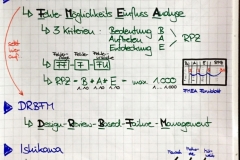 ↳ Fehler Möglichkeits Einfluss Analyse
↳ 3 Kriterien - Bedeutung B
Auftreten A
Entdeckung E
} RPZ
↳ FF - F - FU
↳ RPZ = B * A * E - max. 1.000
1..10 1..10 1..10
FMEA Formblatt
DRBFM
↳ Design-Review-Based-Failure-Management
Ishikawa